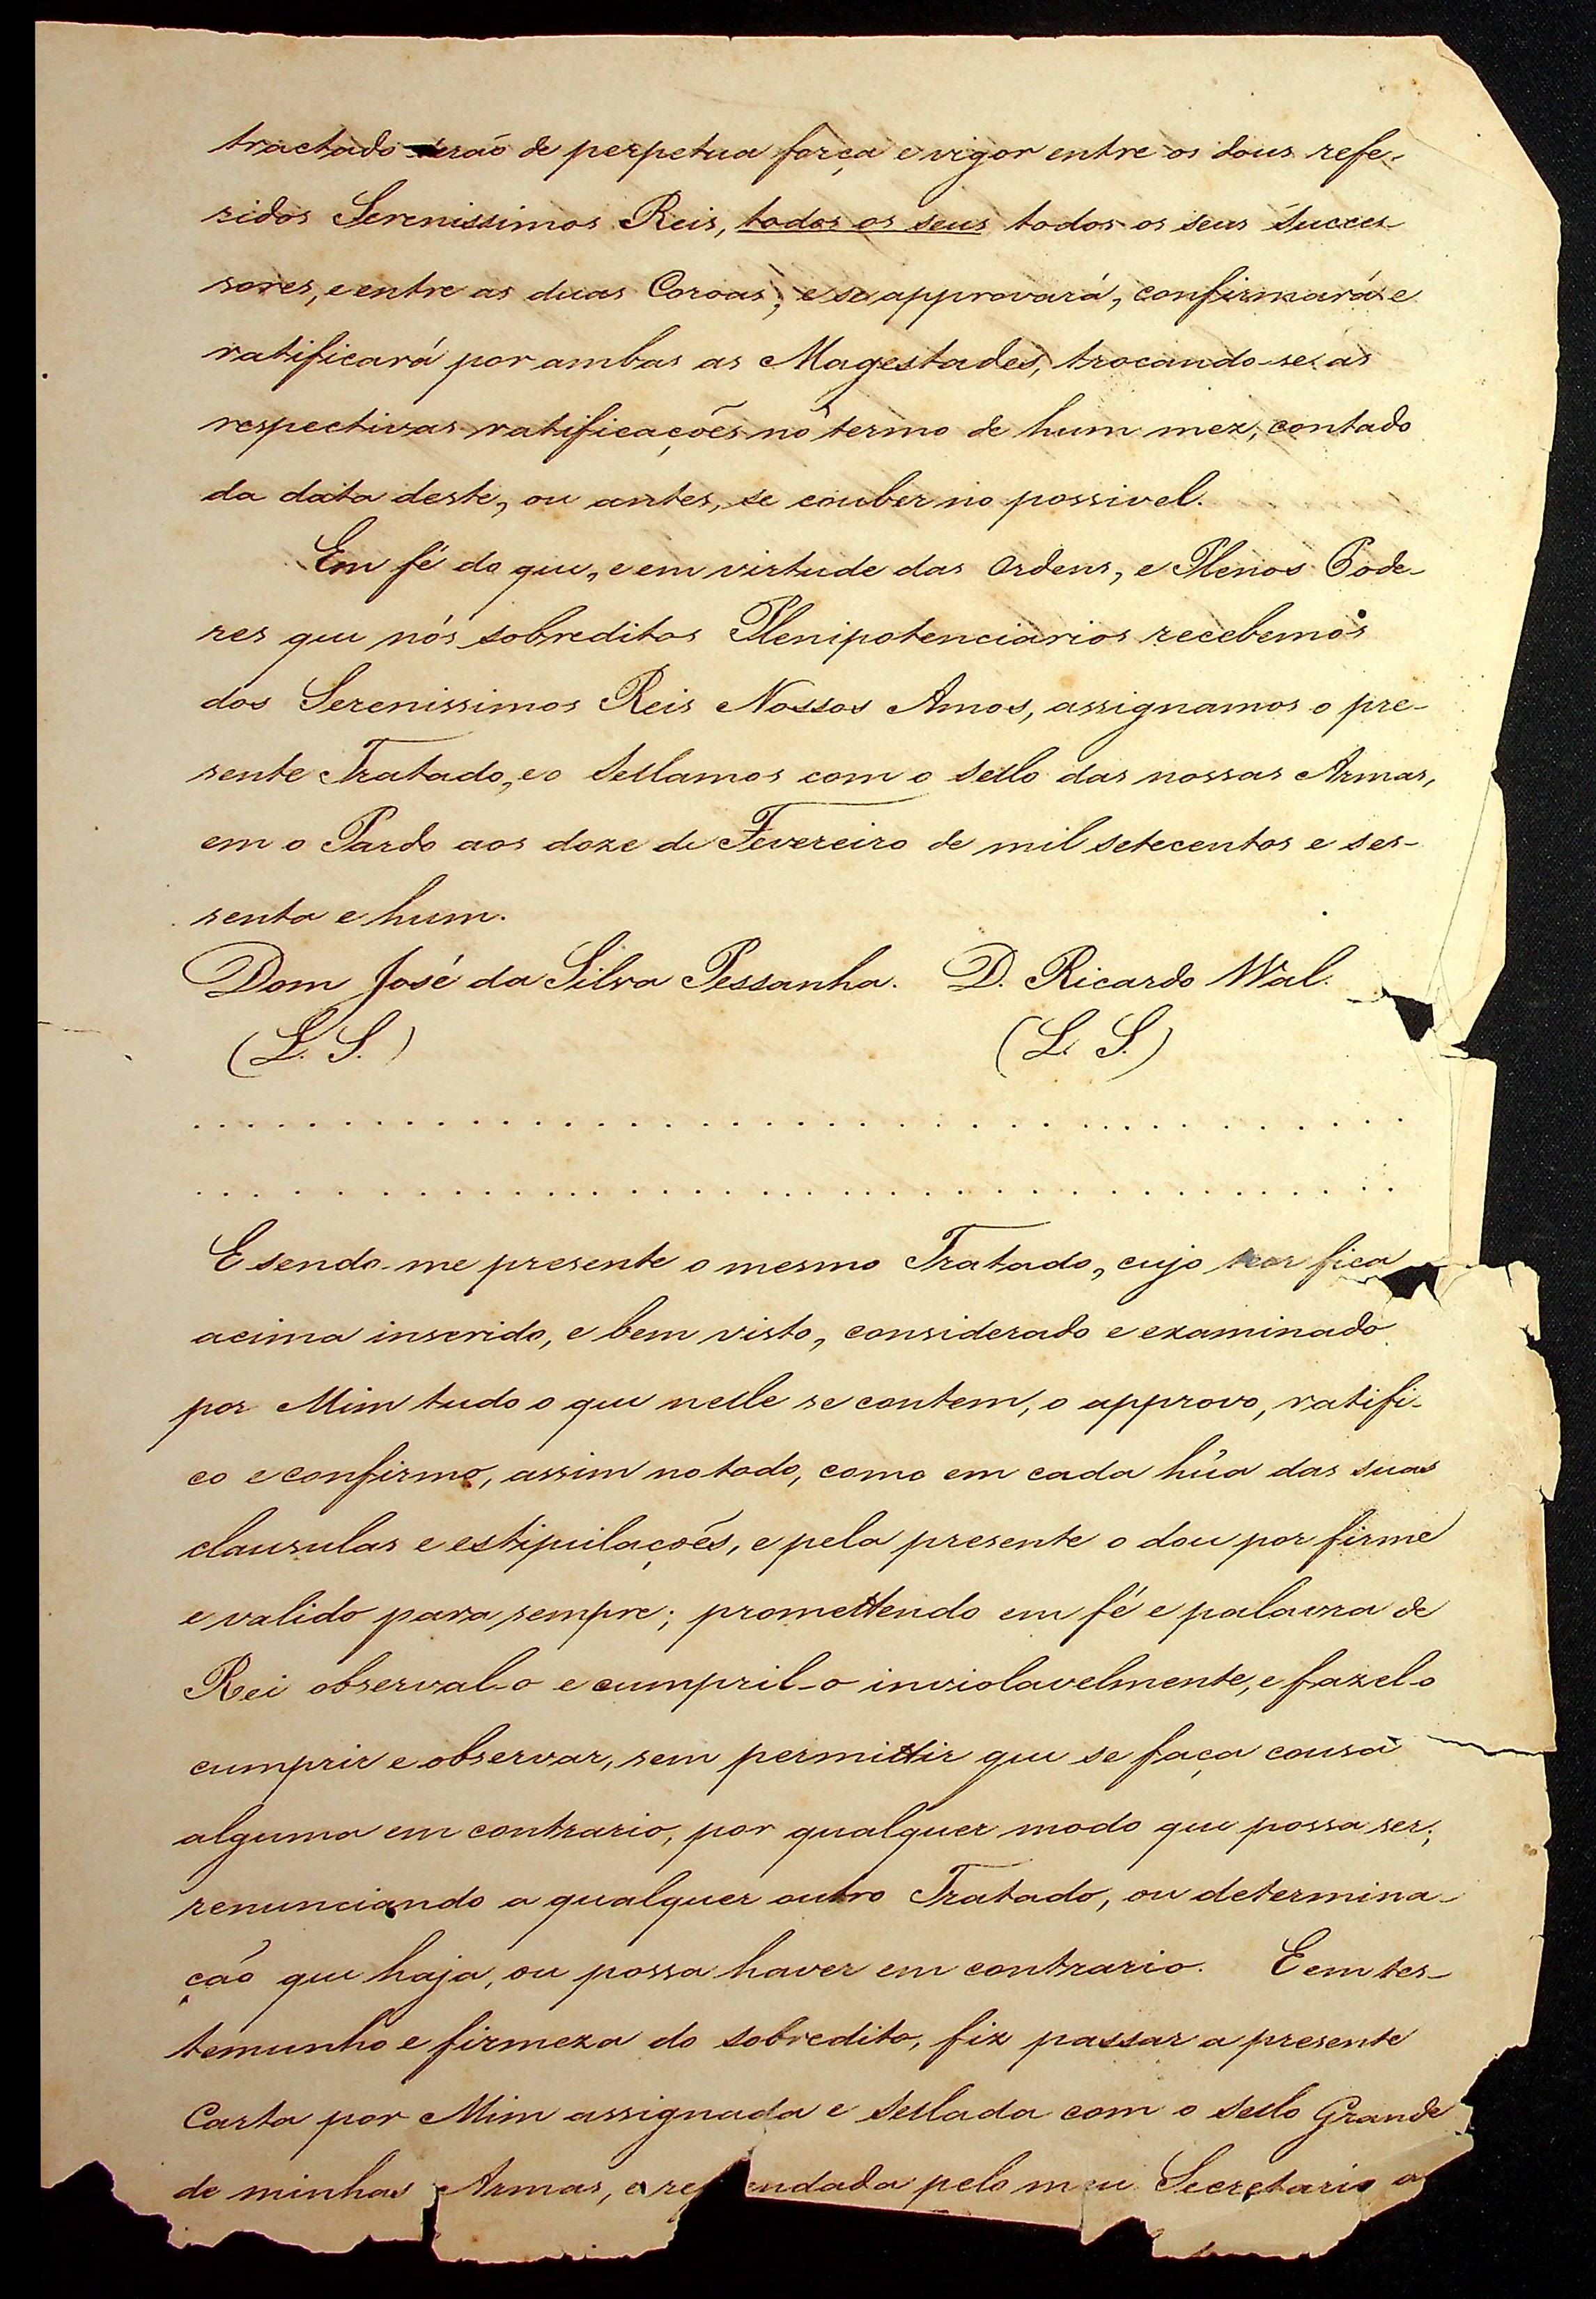 tractado serão de perpetua força e vigor entre os dous refe-
ridos Serenissimos Reis, todos os seus todos os seus succes-
sores, e entre as duas Coroas; e se approvará, confirmará e
ratificará por ambas as Magestades, trocando-se as
respectivas ratificações no termo de hum mez, contado
da data deste, ou antes, se couber no possivel.
Em fé do que, e em virtude das Ordens, e Plenos Pode-
res que nós sobreditos Plenipotenciarios recebemos
dos Serenissimos Reis Nossos Amos, assignamos o pre-
sente Tratado, e o sellamos com o sello das nossas Armas,
em o Pardo aos doze de Fevereiro de mil setecentos e ses-
senta e hum.
Dom José da Silva Pessanha. D. Ricardo Wal.
(L. S.) (L. S.)
. . . . . . . . . . . . . . . . . . . . . . . . . . . . . . . . . . . . . . . .
. . . . . . . . . . . . . . . . . . . . . . . . . . . . . . . . . . . . . . . .
E sendo-me presente o mesmo Tratado, cujo teor fica
acima inserido, e bem visto, considerado e examinado
por Mim tudo o que nelle se contem, o approvo, ratifi-
co e confirmo, assim no todo, como em cada hũa das suas
clausulas e estipulações, e pela presente o dou por firme
e valido para sempre; promettendo em fé e palavra de
Rei observal-o e cumpril-o inviolavelmente, e fazel-o
cumprir e observar, sem permittir que se faça cousa
alguma em contrario, por qualquer modo que possa ser;
renunciando a qualquer outro Tratado, ou determina-
ção que haja, ou possa haver em contrario. E em tes-
temunho e firmeza do sobredito, fiz passar a presente
Carta por Mim assignada e sellada com o sello Grande
de minhas Armas, e pelo meu Secretario